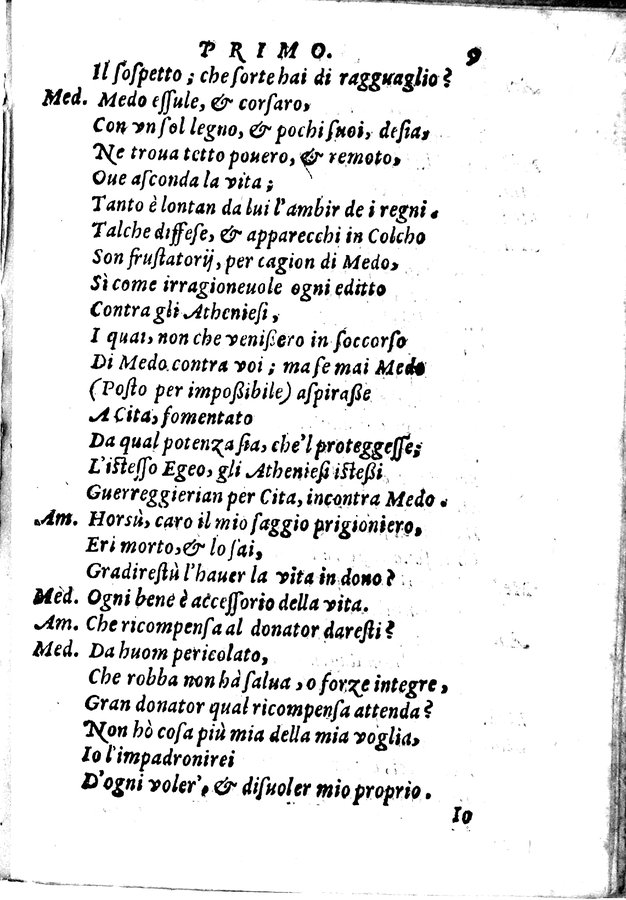 PRIMO. 9
Il ſoſpetto; che ſorte hai di ragguaglio?
Med. Medo eſſule, & corſaro,
Con vn ſol legno, & pochi ſuoi, deſia,
Ne troua tetto pouero, & remoto,
Oue aſconda la vita;
Tanto è lontan da lui l'ambir de i regni.
Talche diffeſe, & apparecchi in Colcho
Son fruſtatorij, per cagion di Medo,
Sì come irragioneuole ogni editto
Contra gli Athenieſi,
I quai, non che veniſſero in ſoccorſo
Di Medo contra voi; ma ſe mai Medo
(Poſto per impoßibile) aſpiraße
A Cita, fomentato
Da qual potenza ſia, che'l proteggeſſe;
L'iſteſſo Egeo, gli Athenieſi iſteßi
Guerreggierian per Cita, incontra Medo.
Am. Horsù, caro il mio ſaggio prigioniero,
Eri morto, & lo ſai,
Gradireſtù l'hauer la vita in dono?
Mèd. Ogni bene è acceſſorio della vita.
Am. Che ricompenſa al donator dareſti?
Med. Da huom pericolato,
Che robba non hà ſalua, o forze integre,
Gran donator qual ricompenſa attenda?
Non hò coſa più mia della mia voglia,
Io l'impadronirei
D'ogni voler', & diſuoler mio proprio.
Io